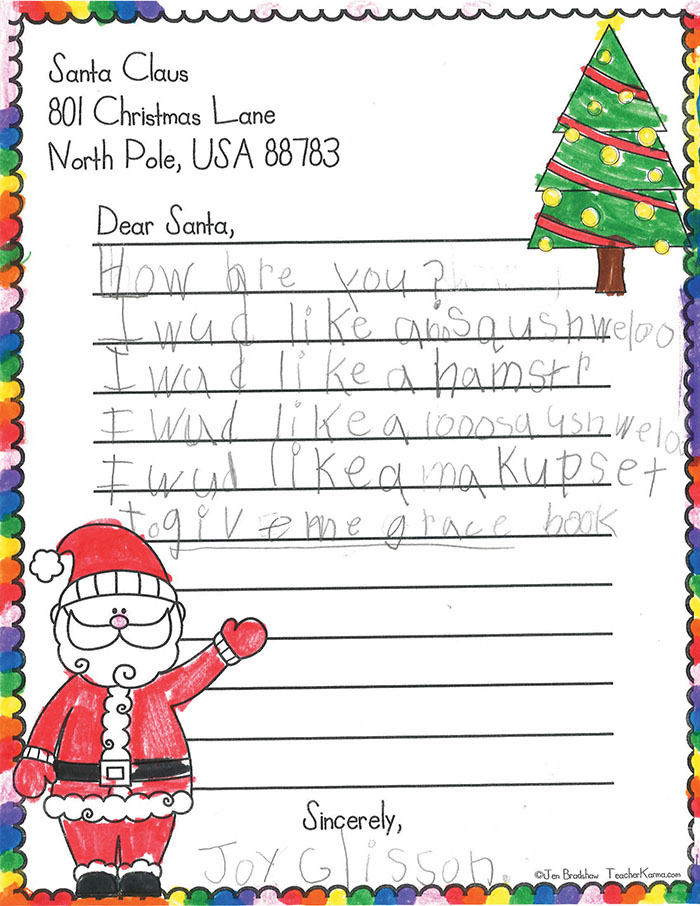 Santa Claus
801 Christmas Lane
North Pole, USA 88783
Dear Santa,
How are you?
I wud like a squshweloo
I wud like a hamstr
I wud like a 1000 sqshweloo
I wud like a makupset
to give me grace book
Sincerely,
Joy Glisson.
©Jen Bradshaw TeacherKarma.com